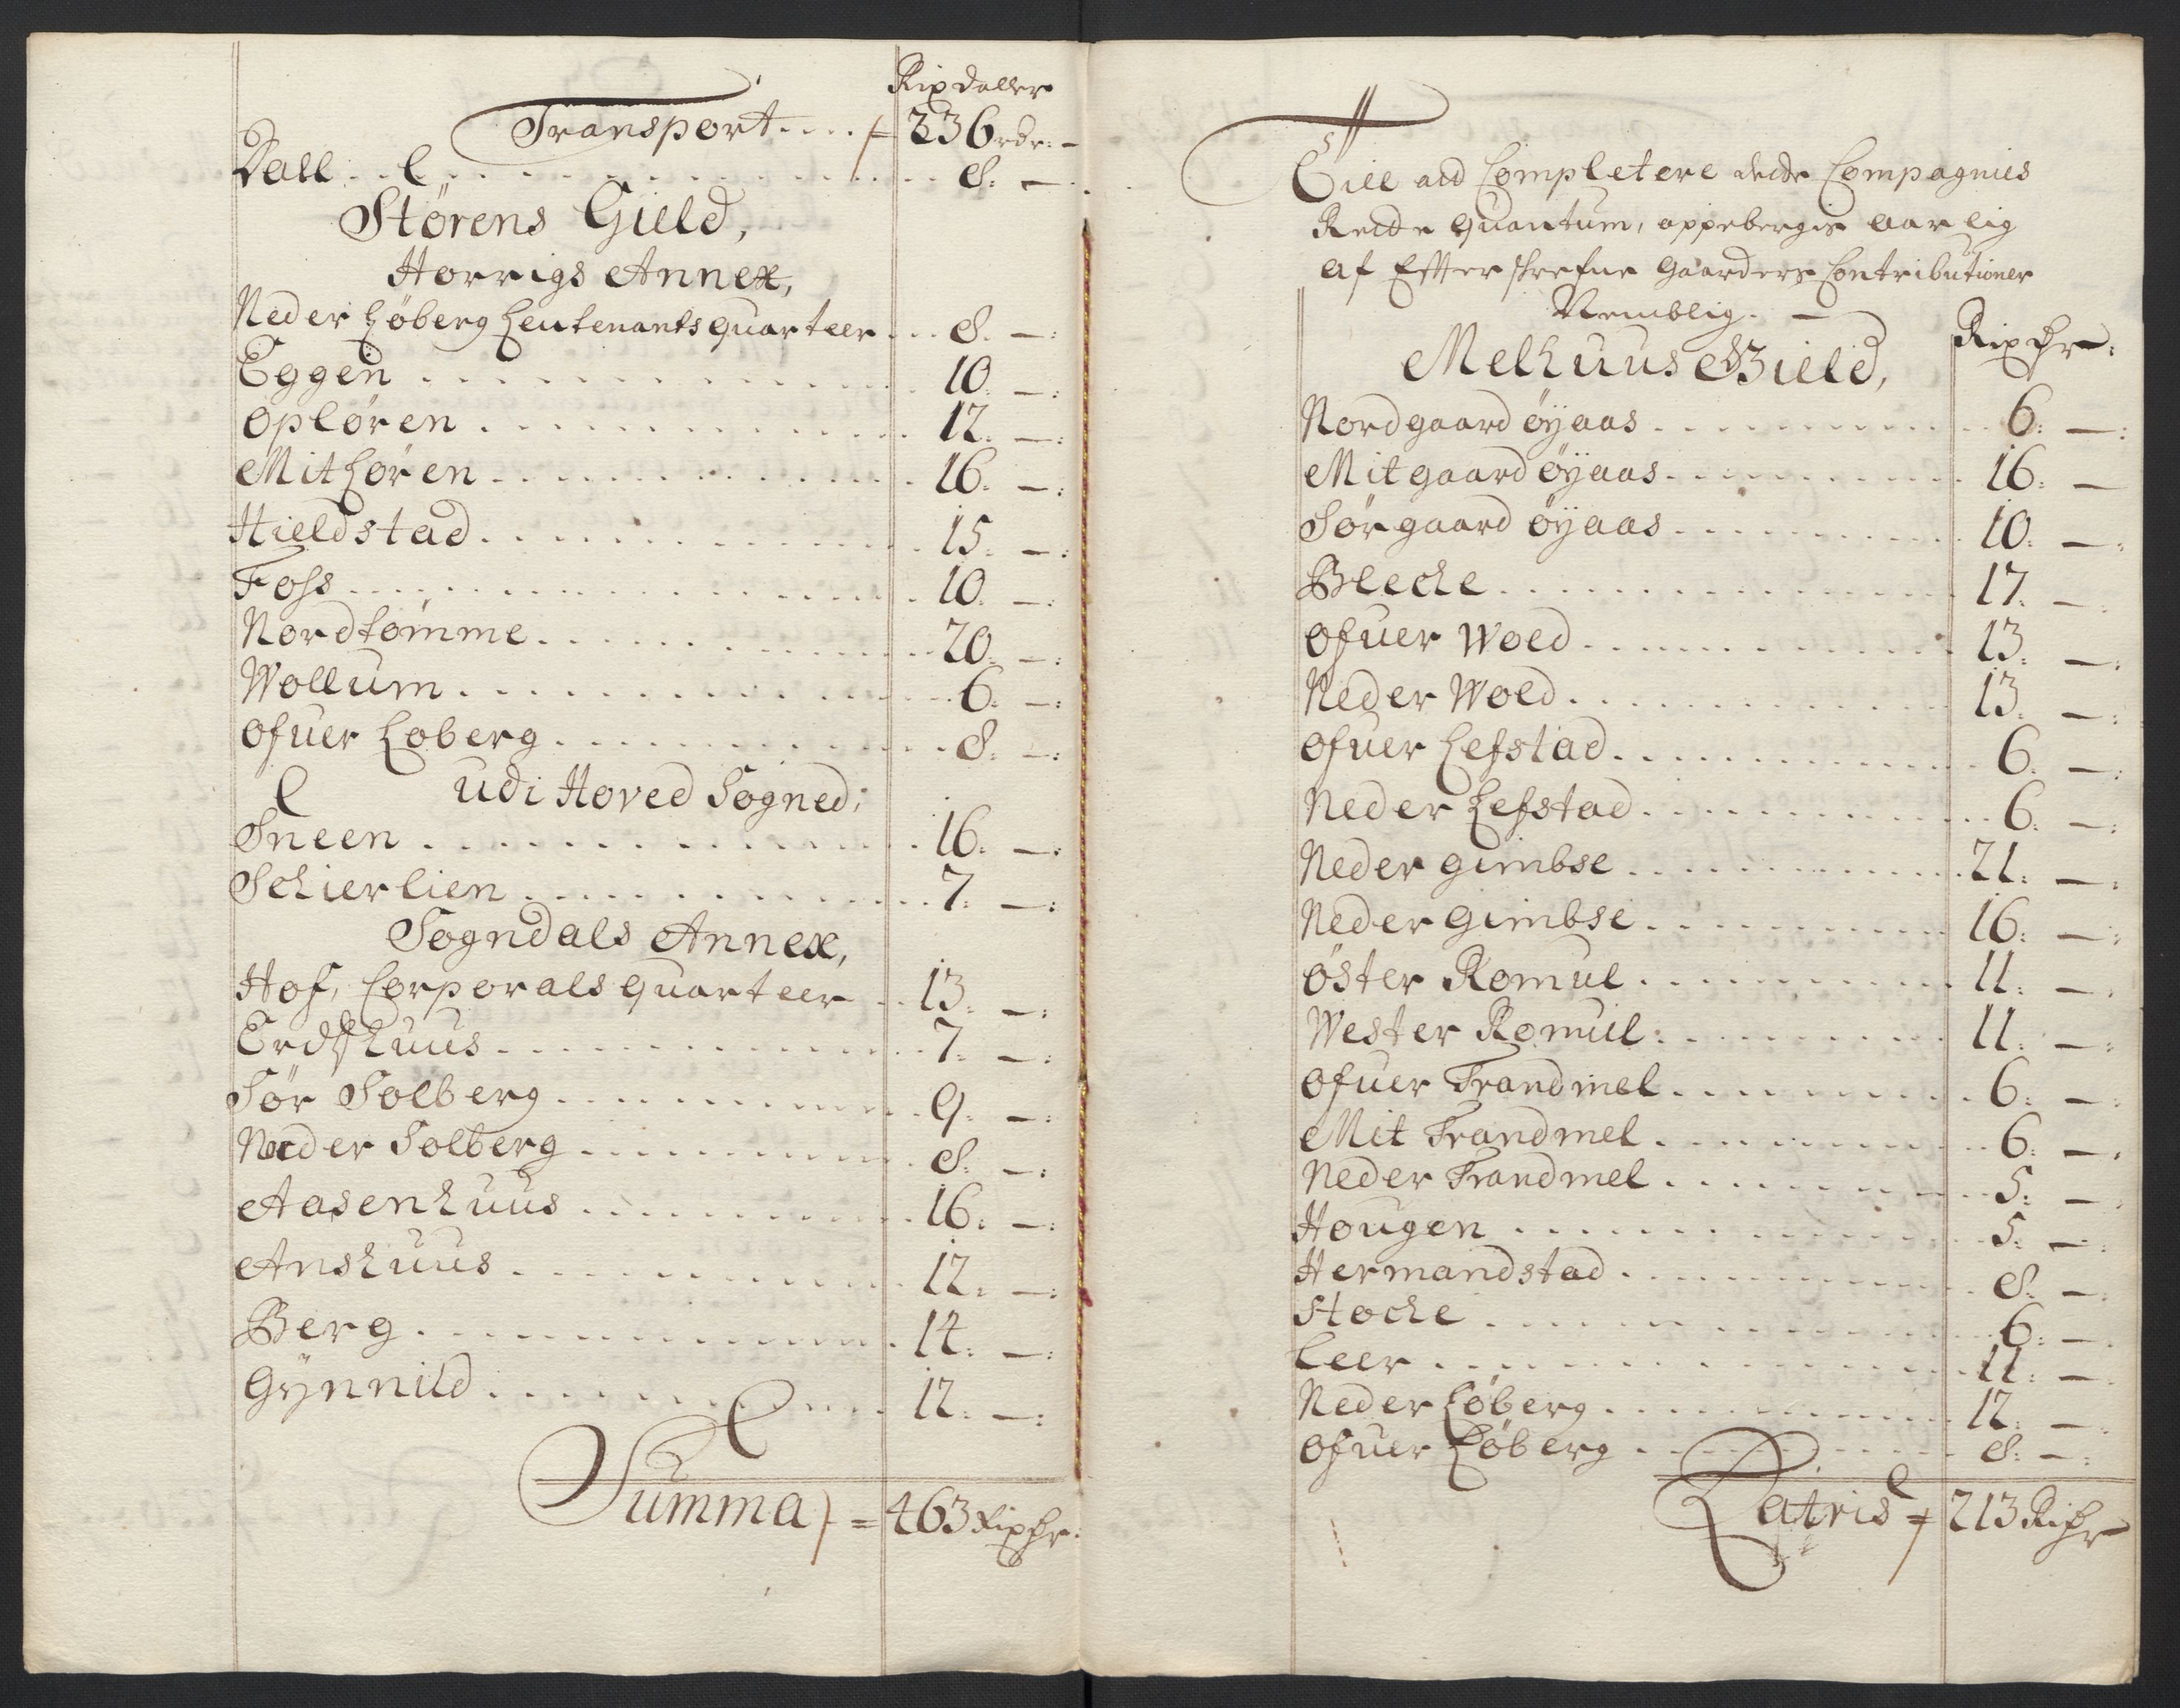 Rixdaller
Transport.... 236 rdr: -
Dall . . . . 8. -
Störens Gield,
Horrigs Annex,
Neder Løberg Leutenants quarteer . . . 8. -:
Eggen . . . . 10. -:
Opløren . . . . 12. -:
Mitløren . . . . 16. -:
Hieldstad . . . . 15. -:
Foss . . . . 10. -:
Nordtømme . . . . 20. -:
Wollum . . . . 6. -:
Ofuer Løberg . . . . 8. -:
udi Hoved Sogned:
Sneen . . . . 16. -:
Schierlien . . . . 7. -:
Sogndals Annex,
Hof, Corporals quarteer . . 13. -:
Erdshuus . . . . 7. -:
Sør Solberg . . . . 9. -:
Neder Solberg . . . . 8. -:
Aasenhuus . . . . 16. -:
Anshuus . . . . 12. -:
Berg . . . . 14. -:
Gynnild . . . . 12. -:
Summa = 463 Rixdr:
Till ad Completere dette Compagnies
Rette Quantum, oppebergis aarlig
af Effterskrefne Gaarders Contributioner
Nemblig. -
Rixdr:
Melhuus Gield,
Nordgaard øyaas . . . . 6: -:
Mitgaard øyaas . . . . 16: -
Sørgaard øyaas . . . . 10: -:
Bleche . . . . 17. -:
Ofuer Wold . . . . 13. -:
Neder Wold . . . . 13. -:
Ofuer Lefstad . . . . 6. -:
Neder Lefstad . . . . 6. -:
Neder gimbse . . . . 21. -:
Neder gimbse . . . . 16: -:
Øster Romul . . . . 11: -:
Wester Romul: . . . . 11: -:
Ofuer Trandmel . . . . 6: -:
Mit Trandmel . . . . 6: -:
Neder Trandmel . . . . 5: -:
Hougen . . . . 5: -:
Hermandstad . . . . 8: -:
Stoche . . . . 6: -
Leer . . . . 11: -:
Neder Løberg . . . . 12: -:
Ofuer Løberg . . . . 8: -:
Latris = 213 Rixdr